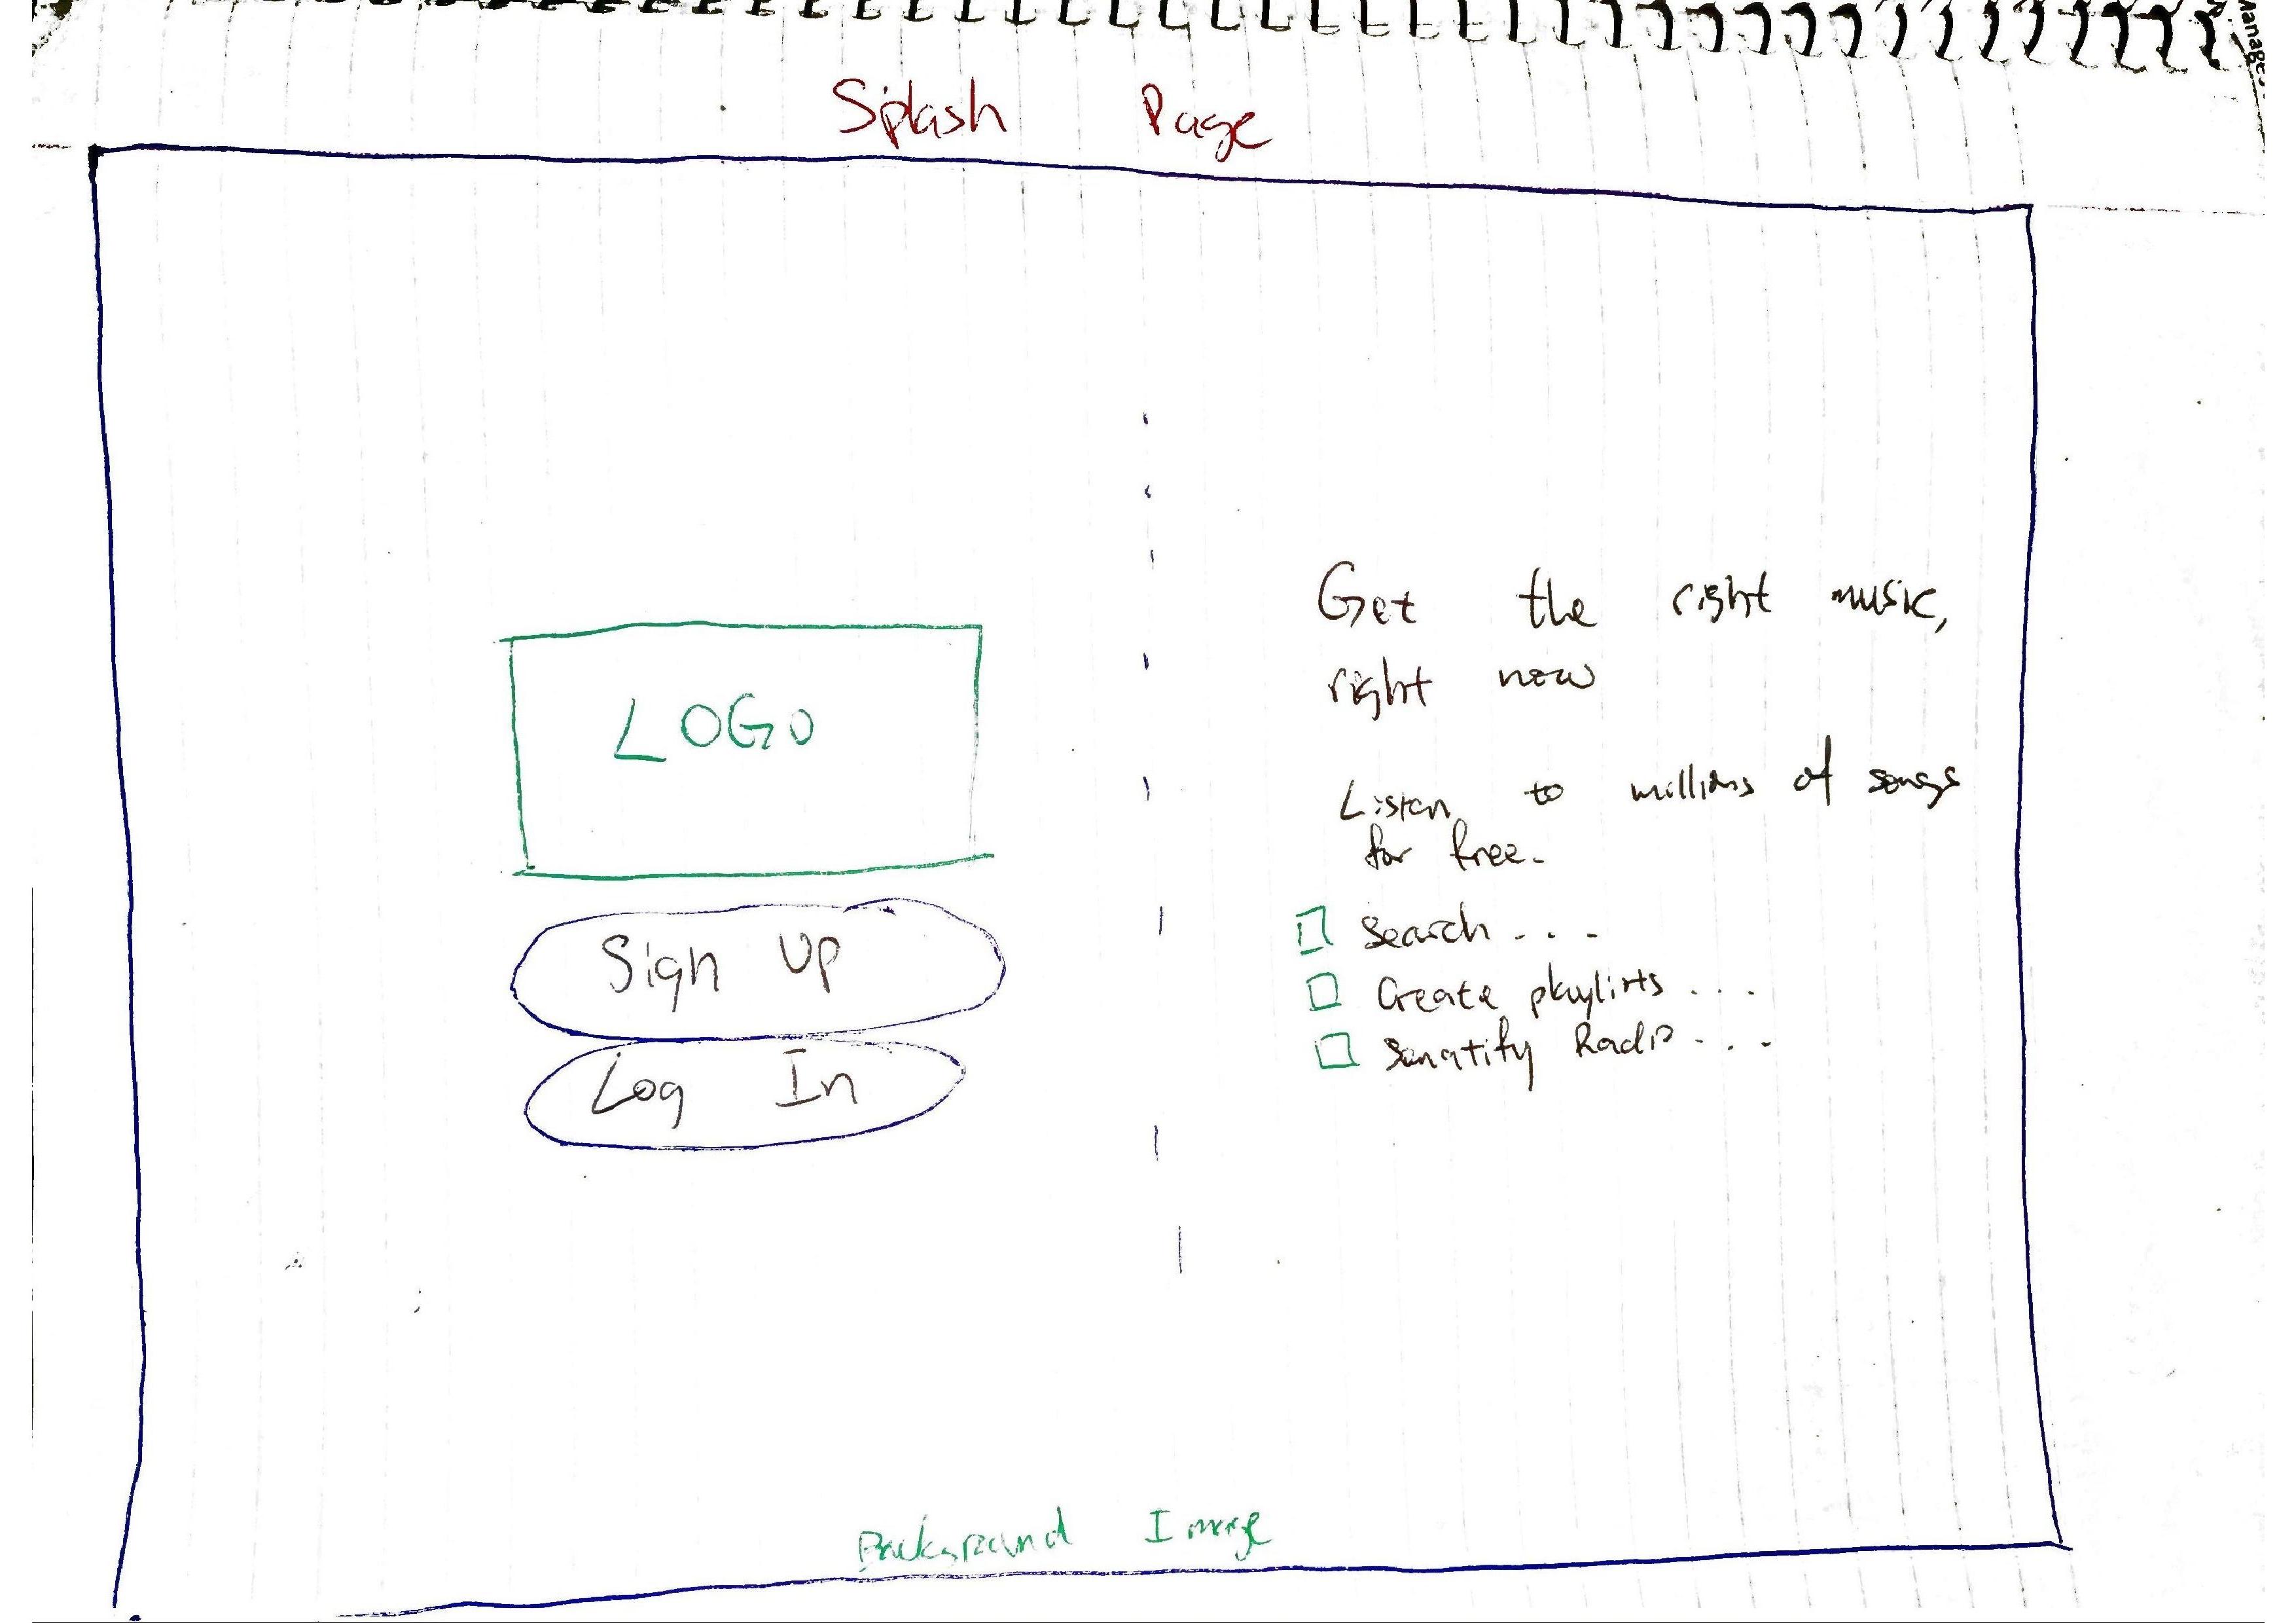 Splash Page
LOGO
Sign Up
Log In
Get the right music,
right now
Listen to millions of songs
for free.
Search ...
Create playlists ...
Sonatify Radio ...
Background Image
Manage